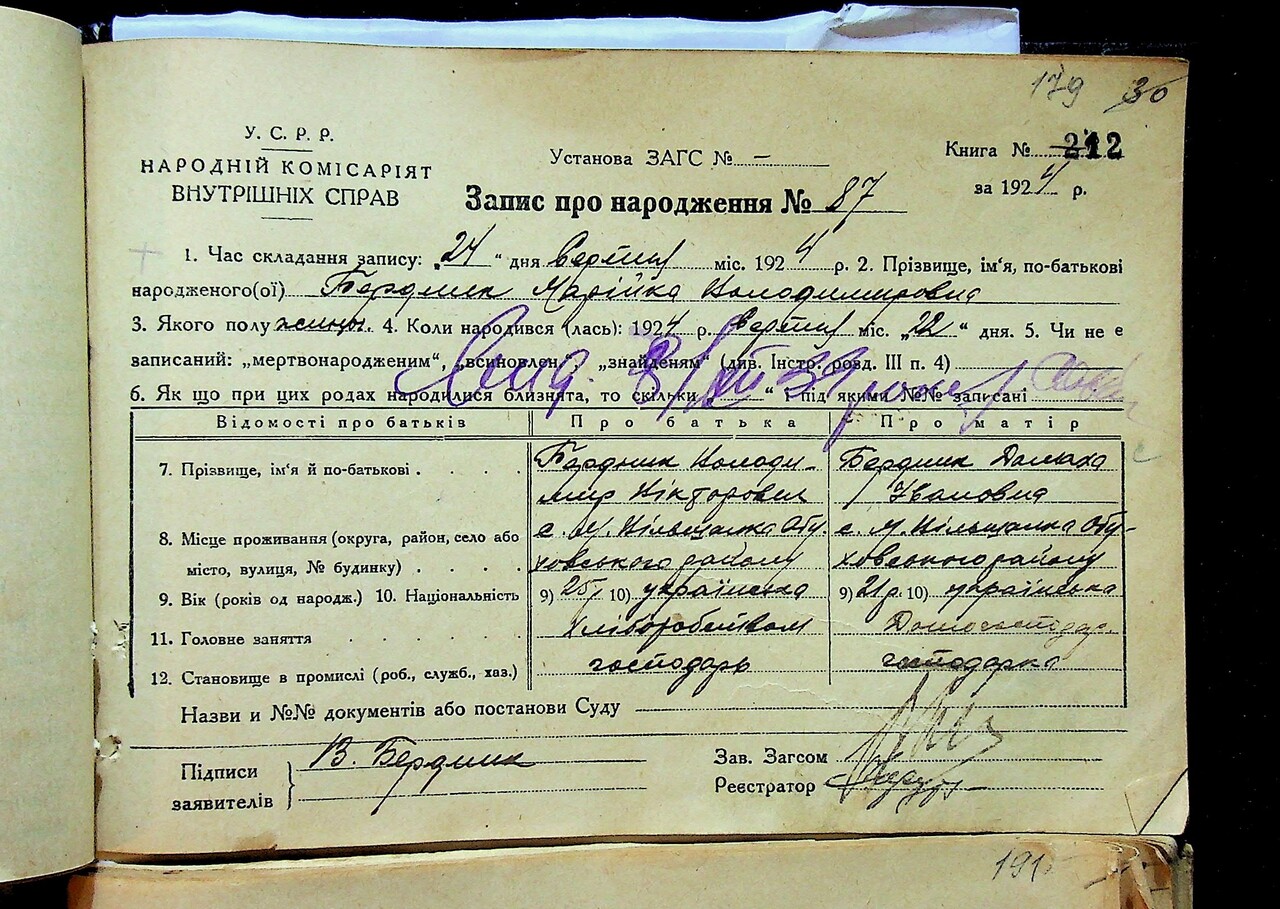 179 30
У. С. Р. Р.
НАРОДНІЙ КОМІСАРІЯТ
ВНУТРІШНІХ СПРАВ
Установа ЗАГС № —
Книга № 212
за 1924 р.
Запис про народження № 87
1. Час складання запису: „24“ дня Серпня міс. 1924 р. 2. Прізвище, ім'я, по-батькові
народженого(ої) Бердник Марійка Володимировна
3. Якого полу жіночі. 4. Коли народився (лась): 1924 р. Серпня міс. „22“ дня. 5. Чи не є
записаний: „мертвонародженим“, „всиновлен.“, „знайденям“ (див. Інстр. розд. III п. 4)
6. Як що при цих родах народилися близнята, то скільки „ “ і під якими №№ записані
Відомості про батьків Про батька Про матір
7. Прізвище, ім'я й по-батькові . . . . Бердник Володи- Бердник Домаха
мир Вікторович Івановна
8. Місце проживання (округа, район, село або с. М. Вільшанка Обу- с. М. Вільшанка Обу-
місто, вулиця, № будинку) . . . . ховського району ховського району
9. Вік (років од народж.) 10. Національність 9) 25 10) українська 9) 21 р. 10) українська
11. Головне заняття . . . . . . . Хліборобством Домогосподар.
12. Становище в промислі (роб., служб., хаз.) господарь господарка
Назви и №№ документів або постанови Суду —
Підписи
заявителів
В. Бердник
Зав. Загсом
Реєстратор
191